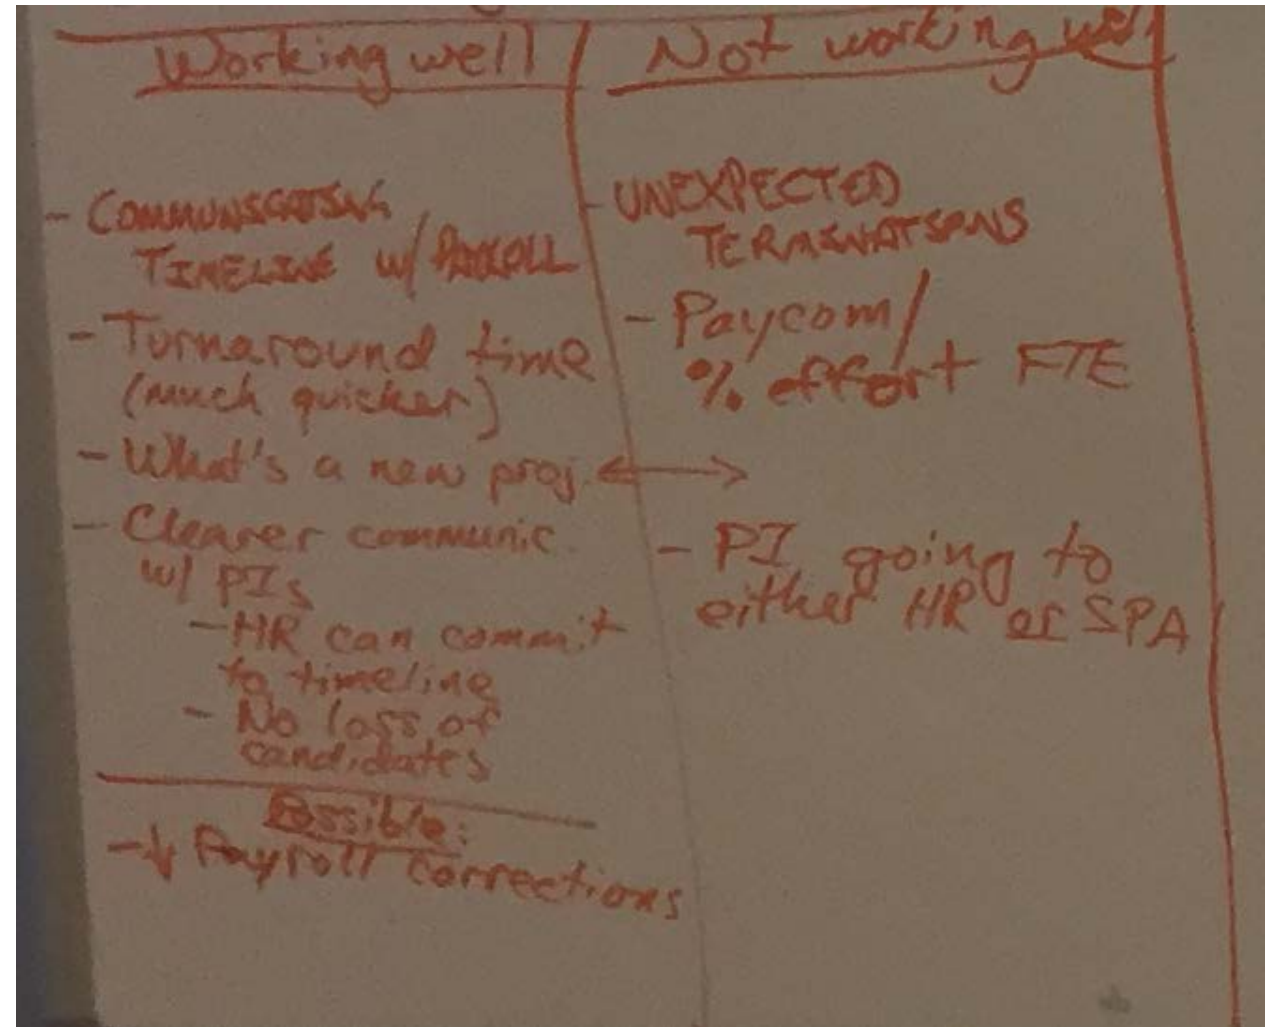 Working well
- COMMUNICATING
TIMELINE w/ PAYROLL
- Turnaround time
(much quicker)
- What's a new proj. ↔
- Clearer communic.
w/ PIs
- HR can commit
to timeline
- No loss of
candidates
Possible:
- ↓ Payroll corrections
Not working well
- UNEXPECTED
TERMINATIONS
- Paycom/
% effort FTE
- PI going to
either HR or SPA